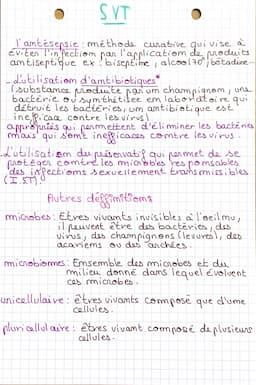 SVT
l'antésepsie : méthode curative qui vise à
éviter l'infection par l'application de produits
antiseptique ex : biseptine, alcool 70°, bétadine
- L'utilisation d'antibiotiques*
(substance produite par un champignon, une
bactérie ou synthétisée en laboratoire qui
détruit les bactéries, un antibiotique est
inefficace contre les virus)
appropriés qui permettent d'éliminer les bactéries
mais qui sont inefficaces contre les virus.
- L'utilisation du préservatif qui permet de se
protéger contre les microbes responsables
des infections sexuellement transmissibles
(I.ST).
Autres définitions
microbes : Etres vivants invisibles à l'oeil nu,
il peuvent être des bactéries, des
virus, des champignons (levures), des
acariens ou des archées.
microbiomes : Ensemble des microbes et du
milieu donné dans lequel évoluent
ces microbes.
unicellulaire : êtres vivants composé que d'une
cellules.
pluricellulaire : êtres vivant composé de plusieurs
cellules.